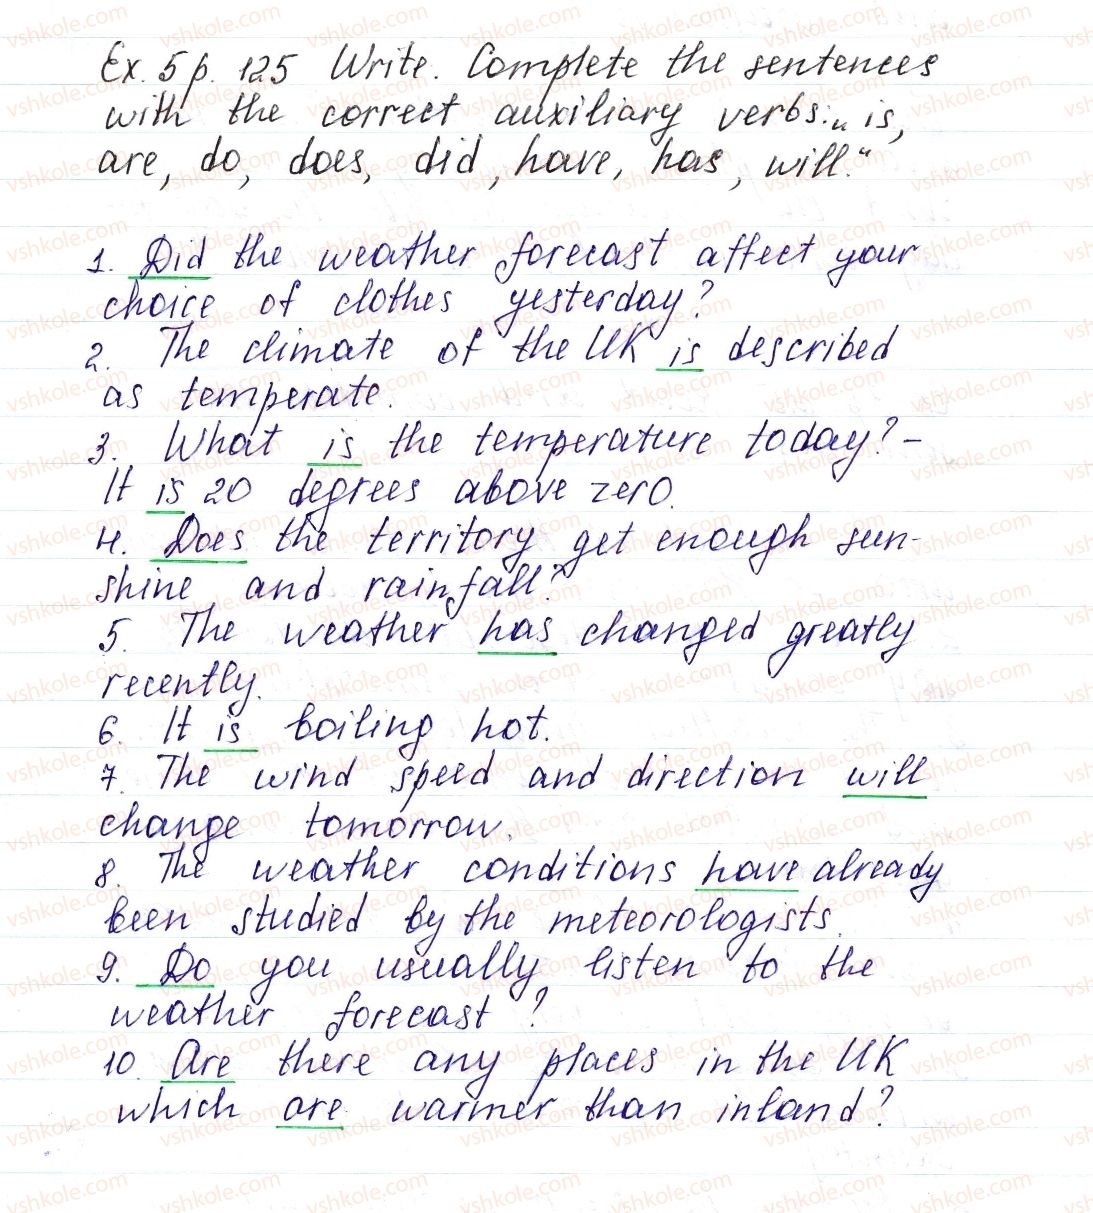 Ex. 5 p. 125 Write. Complete the sentences
with the correct auxiliary verbs: „is,
are, do, does, did, have, has, will."
1. Did the weather forecast affect your
choice of clothes yesterday?
2. The climate of the UK is described
as temperate.
3. What is the temperature today? -
It is 20 degrees above zero.
4. Does the territory get enough sun-
shine and rainfall?
5. The weather has changed greatly
recently.
6. It is boiling hot.
7. The wind speed and direction will
change tomorrow.
8. The weather conditions have already
been studied by the meteorologists.
9. Do you usually listen to the
weather forecast?
10. Are there any places in the UK
which are warmer than inland?